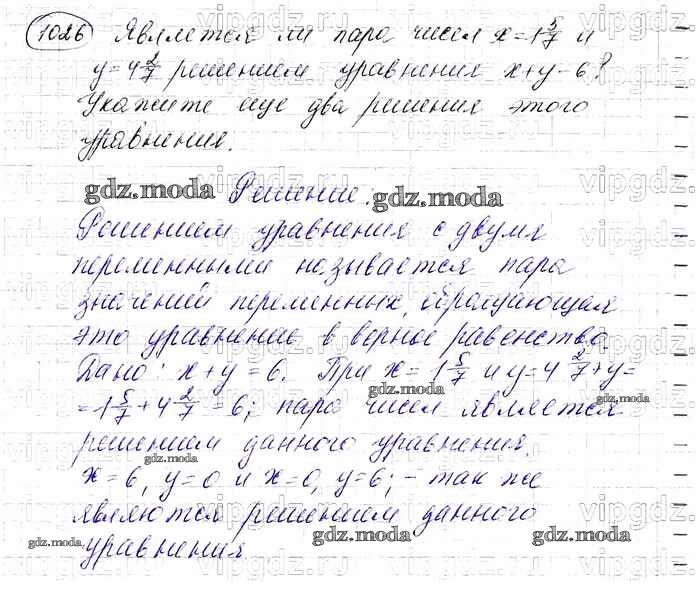 1026 Является ли пара чисел x=1 5/7 и
y=4 2/7 решением уравнения x+y=6?
Укажите еще два решения этого
уравнения.
gdz.moda Решение: gdz.moda
Решением уравнения с двумя
переменными называется пара
значений переменных, обращающая
это уравнение в верное равенство.
Дано: x+y=6. При x=1 5/7 и y=4 2/7 x+y=
gdz.moda
=1 5/7+4 2/7=6; пара чисел является
gdz.moda
решением данного уравнения.
gdz.moda
x=6, y=0 и x=0, y=6; – так же
являются решением данного
gdz.moda gdz.moda gdz.moda
уравнения
vipgdz.ru